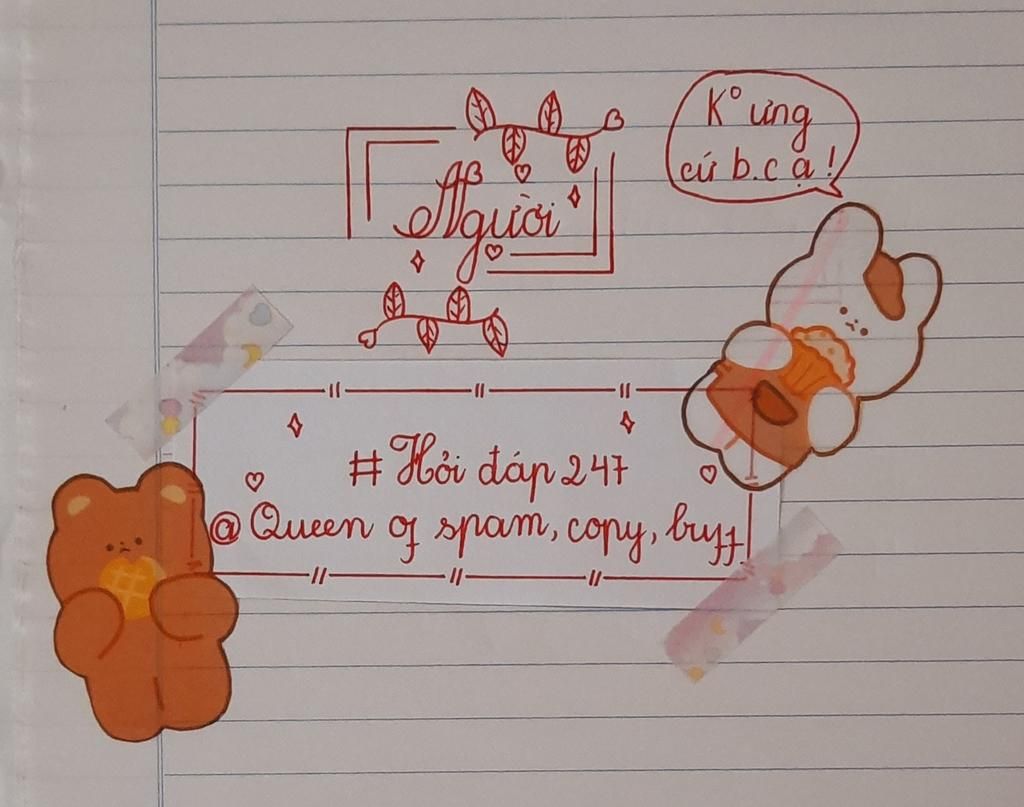 Người
K° ưng
cứ b.c ạ!
# Hỏi đáp 247
@ Queen of spam, copy, buff